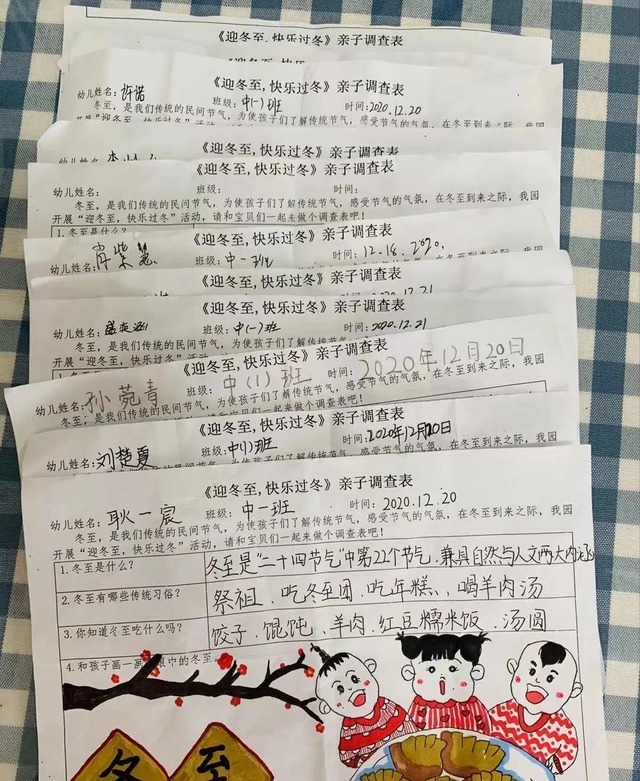 《迎冬至,快乐过冬》亲子调查表
《迎冬至,快乐过冬》亲子调查表
幼儿姓名:许诺 班级:中(一)班 时间:2020.12.20
冬至,是我们传统的民间节气,为使孩子们了解传统节气,感受节气的气氛,在冬至到来之际,我园
开展“迎冬至,快乐过冬”活动,请和宝贝们一起来做个调查表吧!
《迎冬至,快乐过冬》亲子调查表
《迎冬至,快乐过冬》亲子调查表
幼儿姓名: 班级: 时间:
冬至,是我们传统的民间节气,为使孩子们了解传统节气,感受节气的气氛,在冬至到来之际,我园
开展“迎冬至,快乐过冬”活动,请和宝贝们一起来做个调查表吧!
1.冬至是什么?
《迎冬至,快乐过冬》亲子调查表
幼儿姓名:肖紫慧 班级:中一班 时间:12.18.2020.
《迎冬至,快乐过冬》亲子调查表
12.21
《迎冬至,快乐过冬》亲子调查表
幼儿姓名: 班级:中(一)班 时间:2020.12.21
冬至,是我们传统的民间节气,为使孩子们了解传统节气,感受节气的气氛,在冬至到来之际,我园
《迎冬至,快乐过冬》亲子调查表
幼儿姓名:孙菀青 班级:中(1)班 时间:2020年12月20日
冬至,是我们传统的民间节气,为使孩子们了解传统节气,感受节气的气氛,在冬至到来之际,我园
《迎冬至,快乐过冬》亲子调查表
幼儿姓名:刘楚夏 班级:中(1)班 时间:2020年12月20日
《迎冬至,快乐过冬》亲子调查表
幼儿姓名:耿一宸 班级:中一班 时间:2020.12.20
冬至,是我们传统的民间节气,为使孩子们了解传统节气,感受节气的气氛,在冬至到来之际,我园
开展“迎冬至,快乐过冬”活动,请和宝贝们一起来做个调查表吧!
1.冬至是什么? 冬至是“二十四节气”中第22个节气,兼具自然与人文两大内涵
2.冬至有哪些传统习俗? 祭祖、吃冬至团、吃年糕、、喝羊肉汤
3.你知道冬至吃什么吗? 饺子、馄饨、羊肉、红豆糯米饭、汤圆
4.和孩子画一画 眼中的冬至
冬至